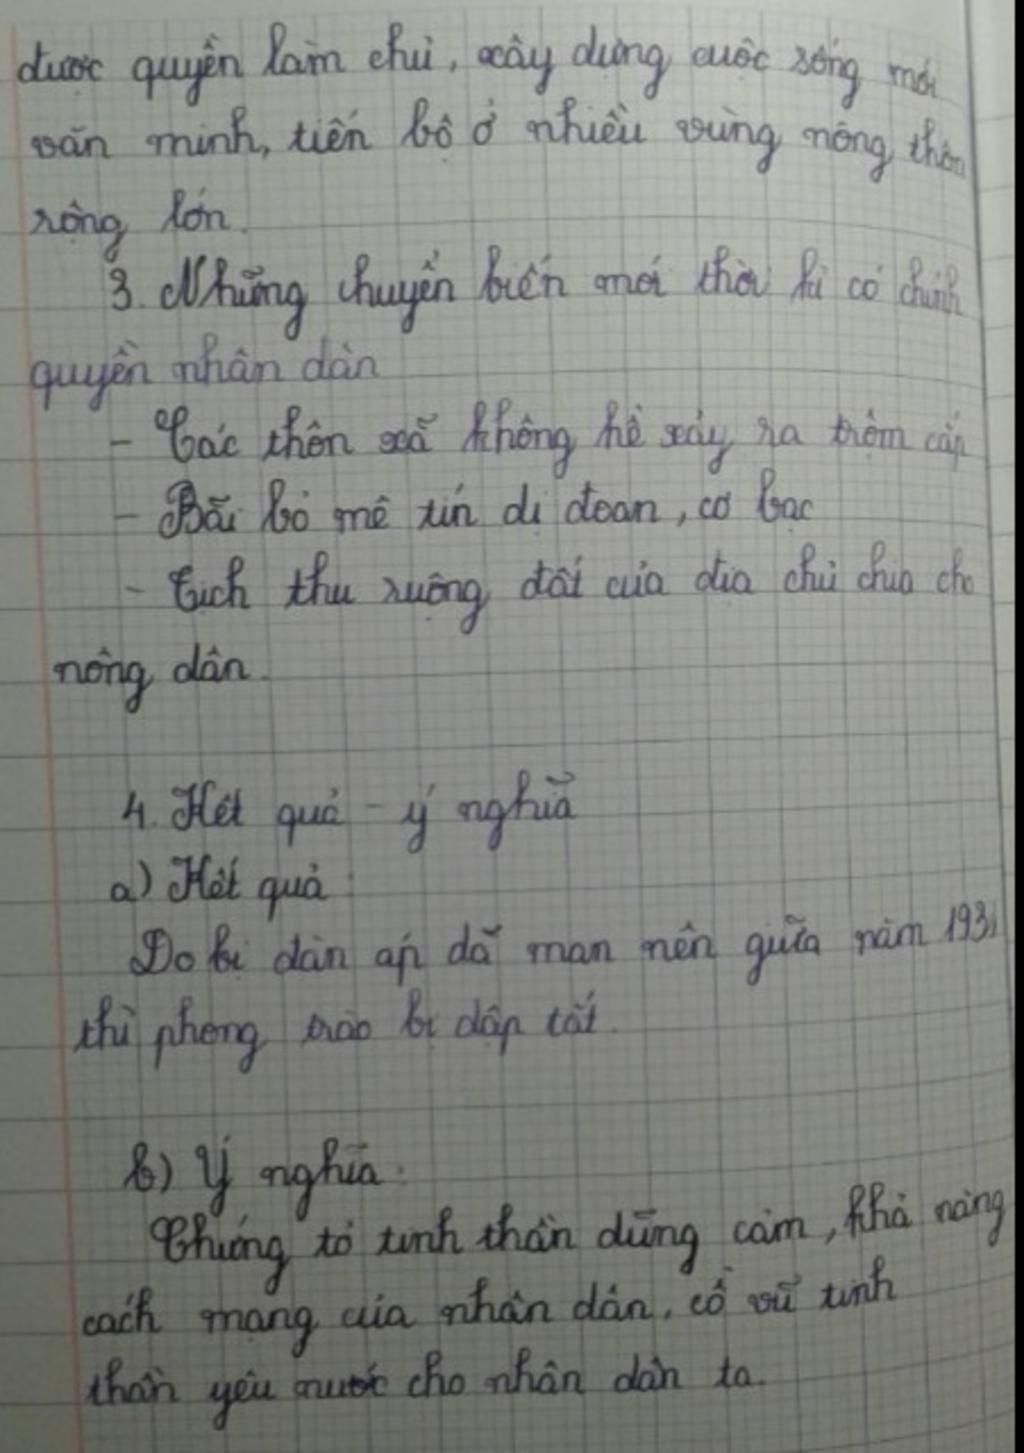 được quyền làm chủ, xây dựng cuộc sống mới
văn minh, tiến bộ ở nhiều vùng nông thôn
rộng lớn.
3. Những chuyển biến mới thời kì có chính
quyền nhân dân
- Các thôn xã không hề xảy ra trộm cắp
- Bãi bỏ mê tín dị đoan, cơ bạc
- Tịch thu ruộng đất của địa chủ chia cho
nông dân.
4. Kết quả - ý nghĩa
a) Kết quả:
Do bị đàn áp dã man nên giữa năm 1931
thì phong trào bị dập tắt.
b) Ý nghĩa:
Chứng tỏ tinh thần dũng cảm, khả năng
cách mạng của nhân dân, cổ vũ tinh
thần yêu nước cho nhân dân ta.